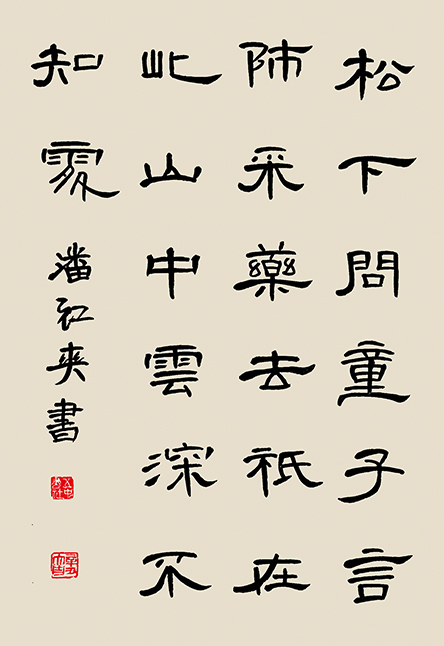 松下問童子言
師采藥去祇在
此山中雲深不
知處
潘 書